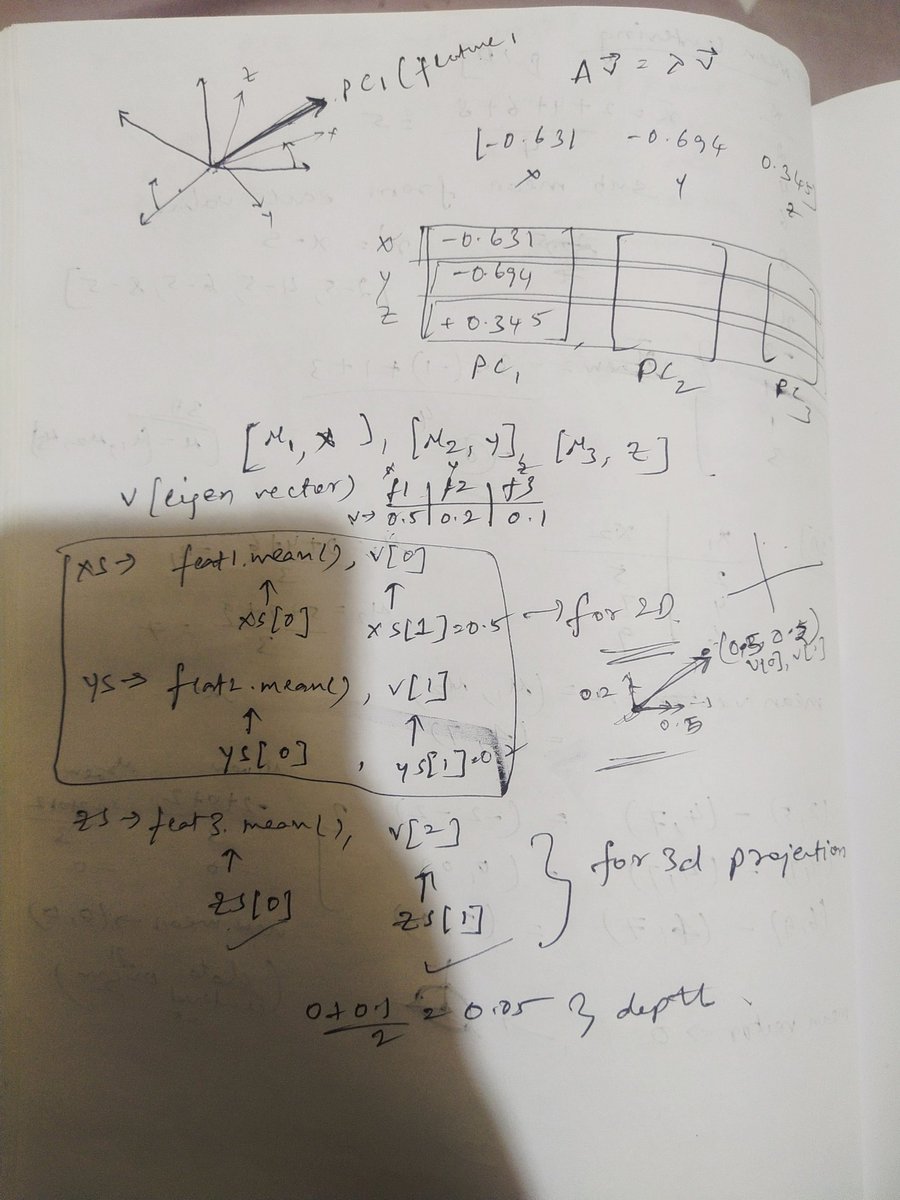 z
PC1 (feature 1
x
y
A v = λ v
[-0.631 -0.694 0.345]
x y z
x -0.631
y -0.694
z +0.345
PC1 , PC2 PC3
[M1, x], [M2, y], [M3, z]
x y z
v (eigen vector) f1 | f2 | f3
v→ 0.5 | 0.2 | 0.1
xs → feat1.mean(), v[0]
xs[0] xs[1]=0.5 → for 2D
ys → feat2.mean(), v[1]
ys[0] , ys[1]=0.2
v[0], v[1]
0.2
0.5
zs → feat3.mean(), v[2]
zs[0] zs[1]
} for 3d projection
0+0.1
2
= 0.05 } depth